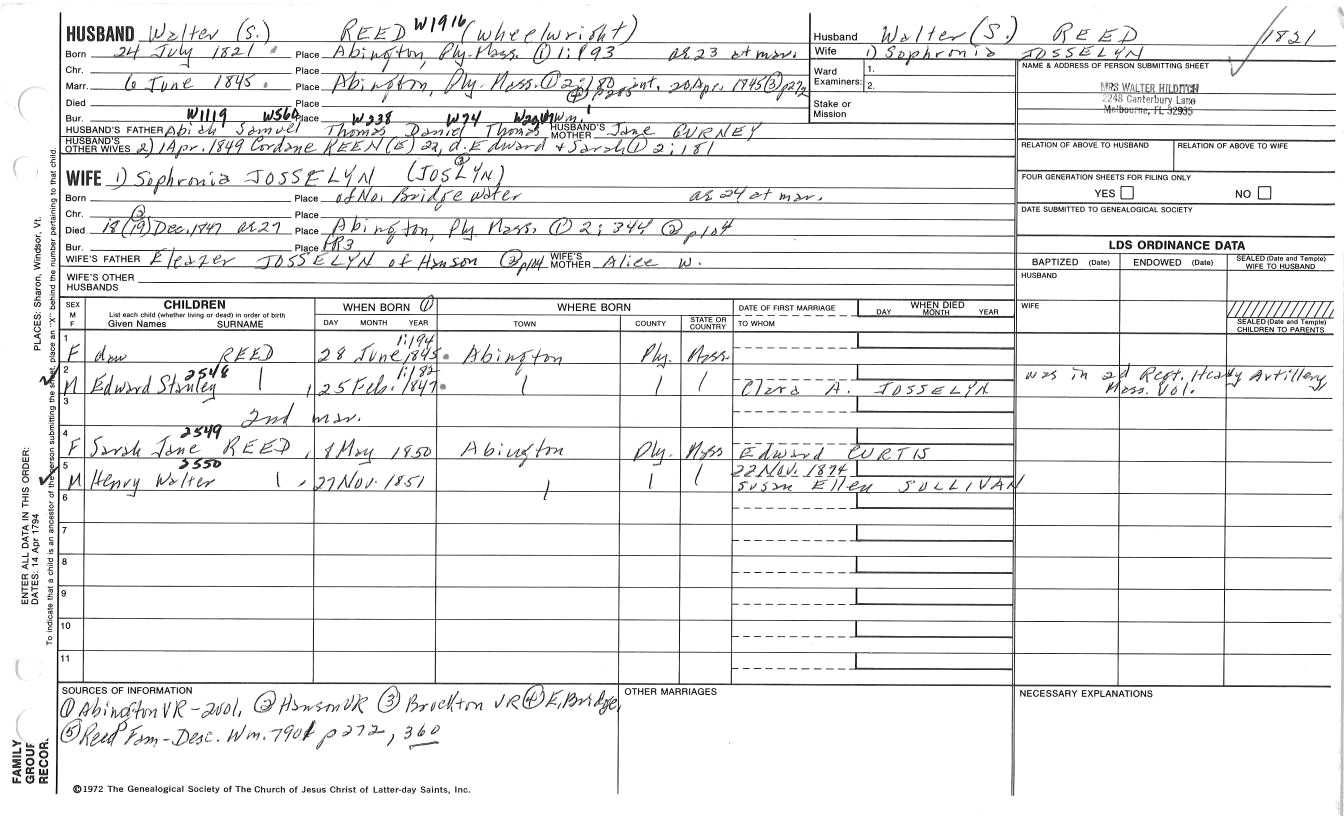 HUSBAND Walter (S.) REED W1916 (wheelwright)
Born 24 July 1821 Place Abington, Ply. Mass. ① 1:193 ae 23 at mar.
Chr. Place
Marr. 6 June 1845 Place Abington, Ply. Mass. ① 2:180 int. 20 Apr. 1845 ③ p272
④ p285
Died Place
Bur. Place
W1119 W560 W238 W74 Wm. 1
HUSBAND'S FATHER Abiah Samuel Thomas Daniel Thomas HUSBAND'S MOTHER Jane GURNEY
HUSBAND'S OTHER WIVES 2) 1 Apr. 1849 Cordane REEN (E) 22, d. Edward + Sarah ① 2:181
WIFE 1) Sophronia JOSSELYN (JOSLYN) ③
Born Place of No. Bridgewater ae 24 at mar.
Chr. Place
Died 18 (19) ② Dec. 1847 ae 27 Place Abington, Ply Mass. ① 2:344 ② p104
Bur. Place PR3
WIFE'S FATHER Eleazer JOSSELYN of Hanson ② p104 WIFE'S MOTHER Alice W.
WIFE'S OTHER HUSBANDS
Husband Walter (S.) REED 1821
Wife 1) Sophronia JOSSELYN
Ward Examiners: 1.
2.
Stake or Mission
NAME & ADDRESS OF PERSON SUBMITTING SHEET
MRS WALTER HILDITCH
2248 Canterbury Lane
Melbourne, FL 32935
RELATION OF ABOVE TO HUSBAND RELATION OF ABOVE TO WIFE
FOUR GENERATION SHEETS FOR FILING ONLY
YES NO
DATE SUBMITTED TO GENEALOGICAL SOCIETY
LDS ORDINANCE DATA
BAPTIZED (Date) ENDOWED (Date) SEALED (Date and Temple) WIFE TO HUSBAND
HUSBAND
WIFE
SEALED (Date and Temple) CHILDREN TO PARENTS
SEX M F
CHILDREN
List each child (whether living or dead) in order of birth
Given Names SURNAME
WHEN BORN ①
DAY MONTH YEAR
WHERE BORN
TOWN COUNTY STATE OR COUNTRY
DATE OF FIRST MARRIAGE
TO WHOM
WHEN DIED
DAY MONTH YEAR
1 F dau REED 28 June 1845 1:194 Abington Ply. Mass
2 M Edward Stanley 2548 25 Feb. 1847 1:182 Clara A. JOSSELYN was in 2d Regt. Heavy Artillery Mass. Vol.
3 2nd mar.
4 F Sarah Jane REED 2549 8 May 1850 Abington Ply. Mass Edward CURTIS
5 M Henry Walter 2550 27 Nov. 1851 22 Nov. 1874
Susan Ellen SULLIVAN
6
7
8
9
10
11
SOURCES OF INFORMATION
① Abington VR-2vol, ② Hanson VR ③ Brockton VR ④ E. Bridge,
⑤ Reed Fam-Desc. Wm. p272, 360
OTHER MARRIAGES
NECESSARY EXPLANATIONS
©1972 The Genealogical Society of The Church of Jesus Christ of Latter-day Saints, Inc.
FAMILY GROUP RECOR.
ENTER ALL DATA IN THIS ORDER:
DATES: 14 Apr 1794
PLACES: Sharon, Windsor, Vt.
To indicate that a child is an ancestor of the person submitting the sheet, place an "X" behind the number pertaining to that child.